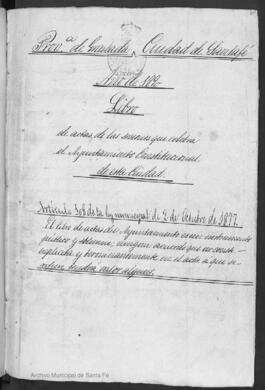 Prov.ª de Granada Ciudad de Santafé
Año de 1890
Libro
de actas de las sesiones que celebra
el Ayuntamiento Constitucional
de esta Ciudad.
Artículo 108 de la ley municipal de 2 de Octubre de 1877.
El libro de actas del Ayuntamiento es un instrumento
publico y solemne; ningun acuerdo que no conste
explicita y terminantemente en el acta a que se
refiera tendra valor alguno.
Archivo Municipal de Santa Fe